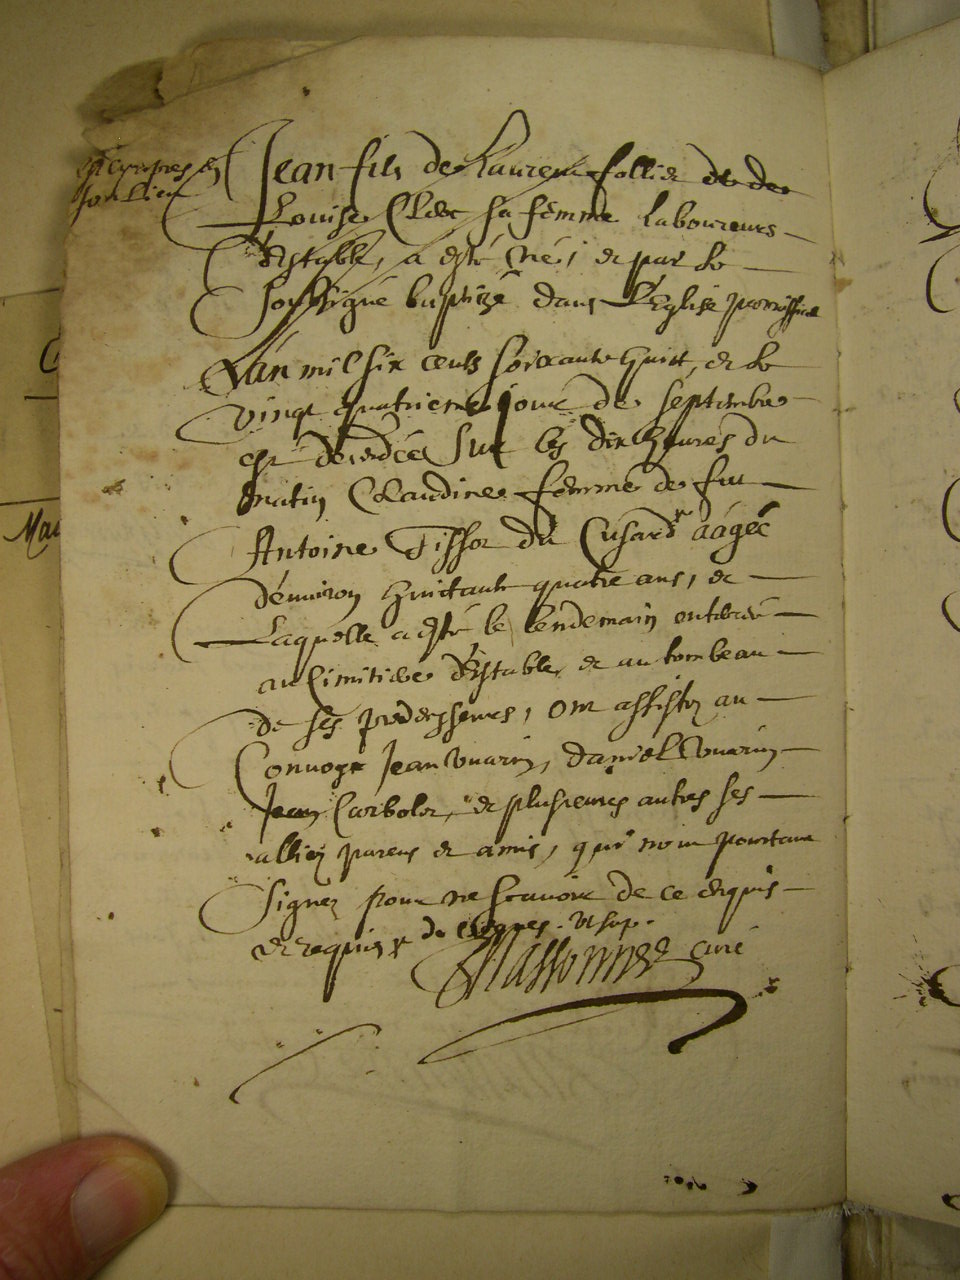 est cy apres en
son lieu
Jean fils de Laurent follier et de
Louise Clerc sa femme laboureurs
d'Estable, a esté né, et par le
Soubsigné baptizé dans l'Eglise
L'an mil six cents soixante huict, et le
vingt quatrieme jour de septembre
est decedée sur les dix heures du
matin Claudine femme de feu
Antoine Tissot du aagée
d'environ huictante quatre ans, et
Laquelle a esté le lendemain enterrée
au Cimitiere d'Estable et au tombeau
de ses predecesseurs, ont assisté au
Convoye Jean Vuarin, Daniel Vuarin
Jean et plusieurs autres ses
alliez parens et amis, qui n'ont pourtant
signez pour ne scavoir de ce enquis
et requis ut sup.
Massonnet curé